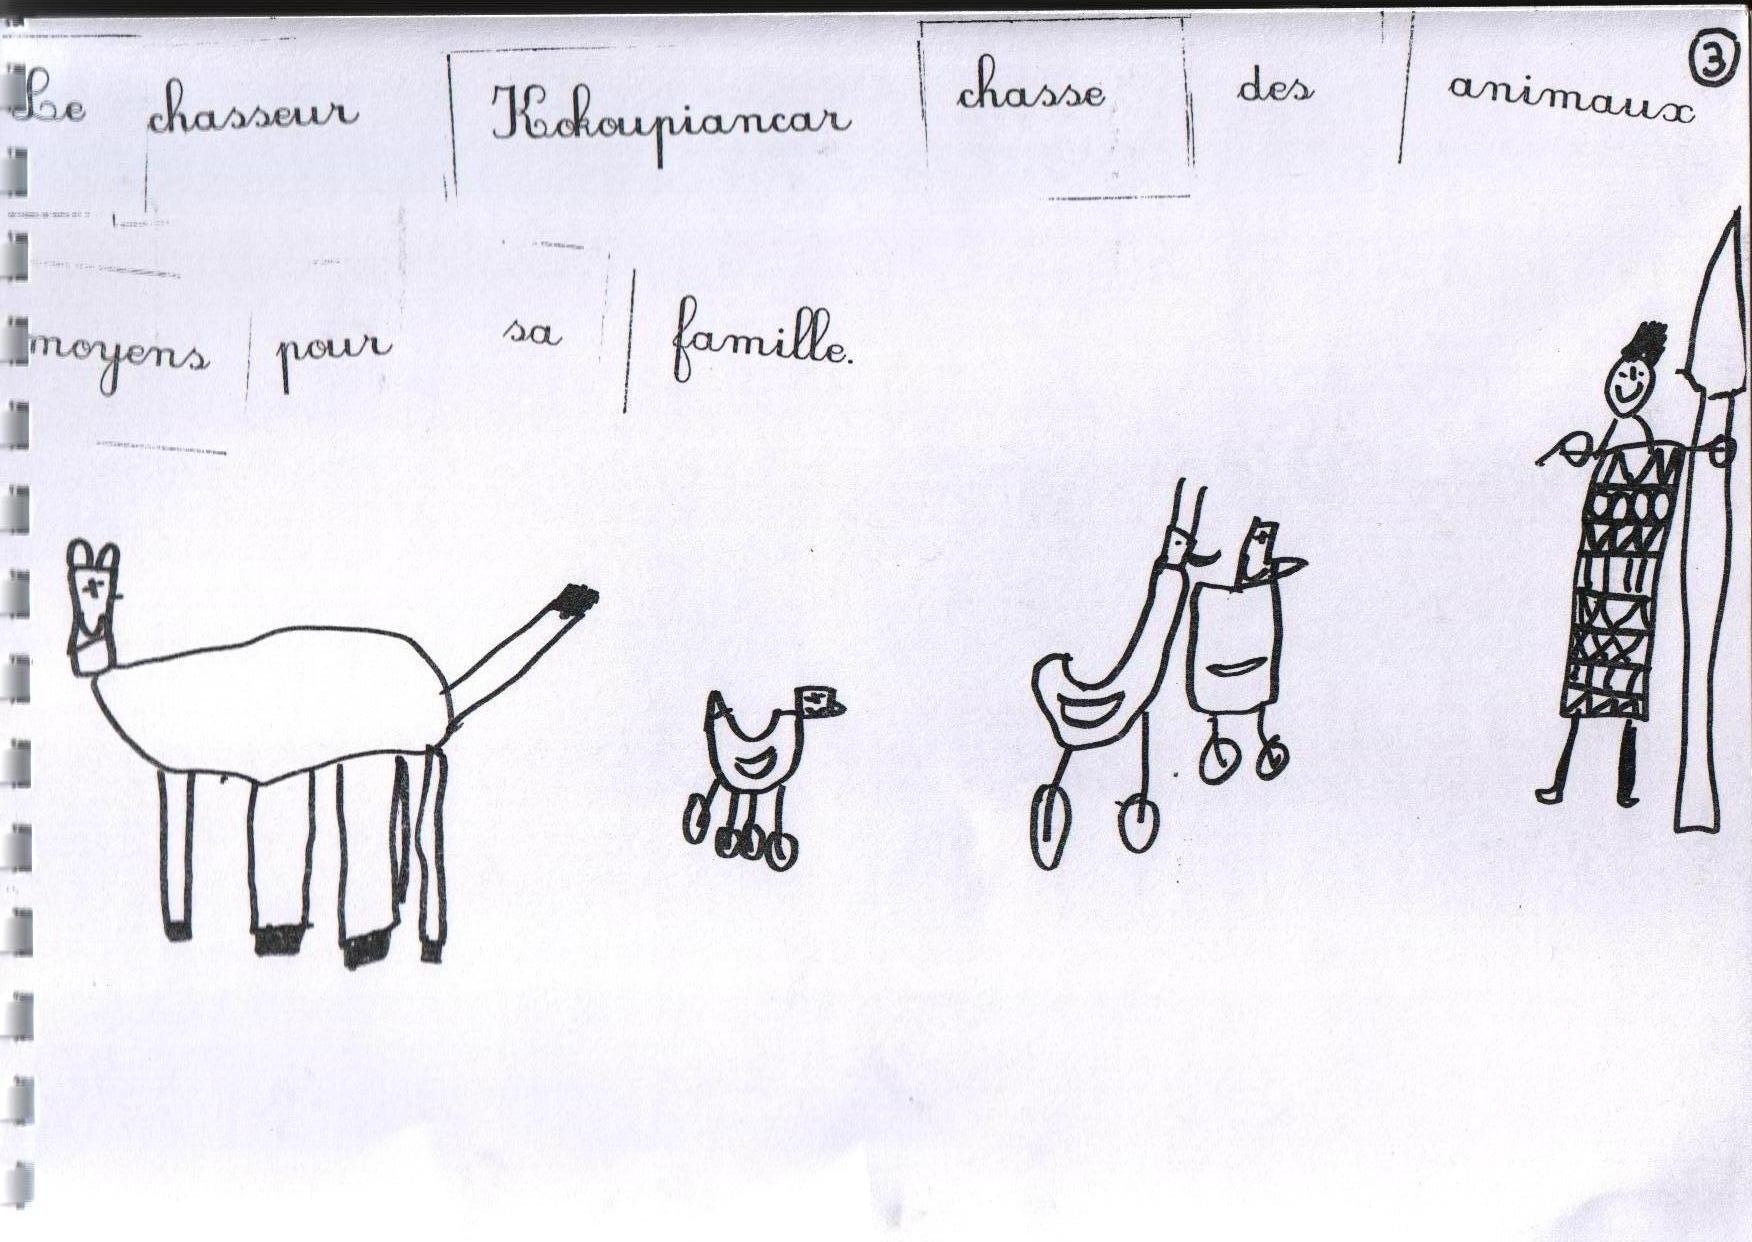 Le chasseur Kokoupiancar chasse des animaux
3
moyens pour sa famille.